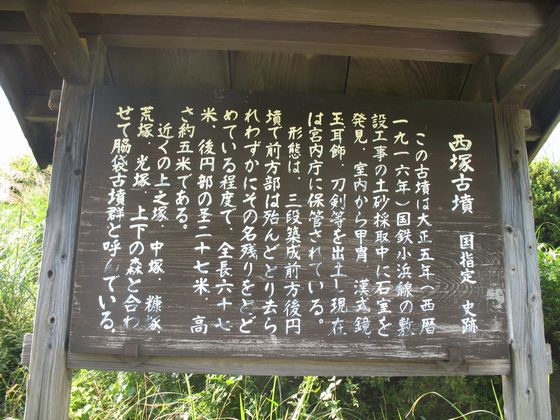 西塚古墳 国指定 史跡
この古墳は大正五年(西暦
一九一六年)国鉄小浜線の敷
設工事の土砂採取中に石室を
発見、室内から甲冑、漢式鏡、
玉耳飾、刀剣等を出土し現在
は宮内庁に保管されている。
形態は、三段築成前方後円
墳で前方部は殆んどとり去ら
れわずかにその名残りをとど
めている程度で、全長六十七
米、後円部の圣二十七米、高
さ約五米である。
近くの上之塚、中塚、糠塚、
荒塚、光塚、上下の森と合わ
せて脇袋古墳群と呼んでいる。